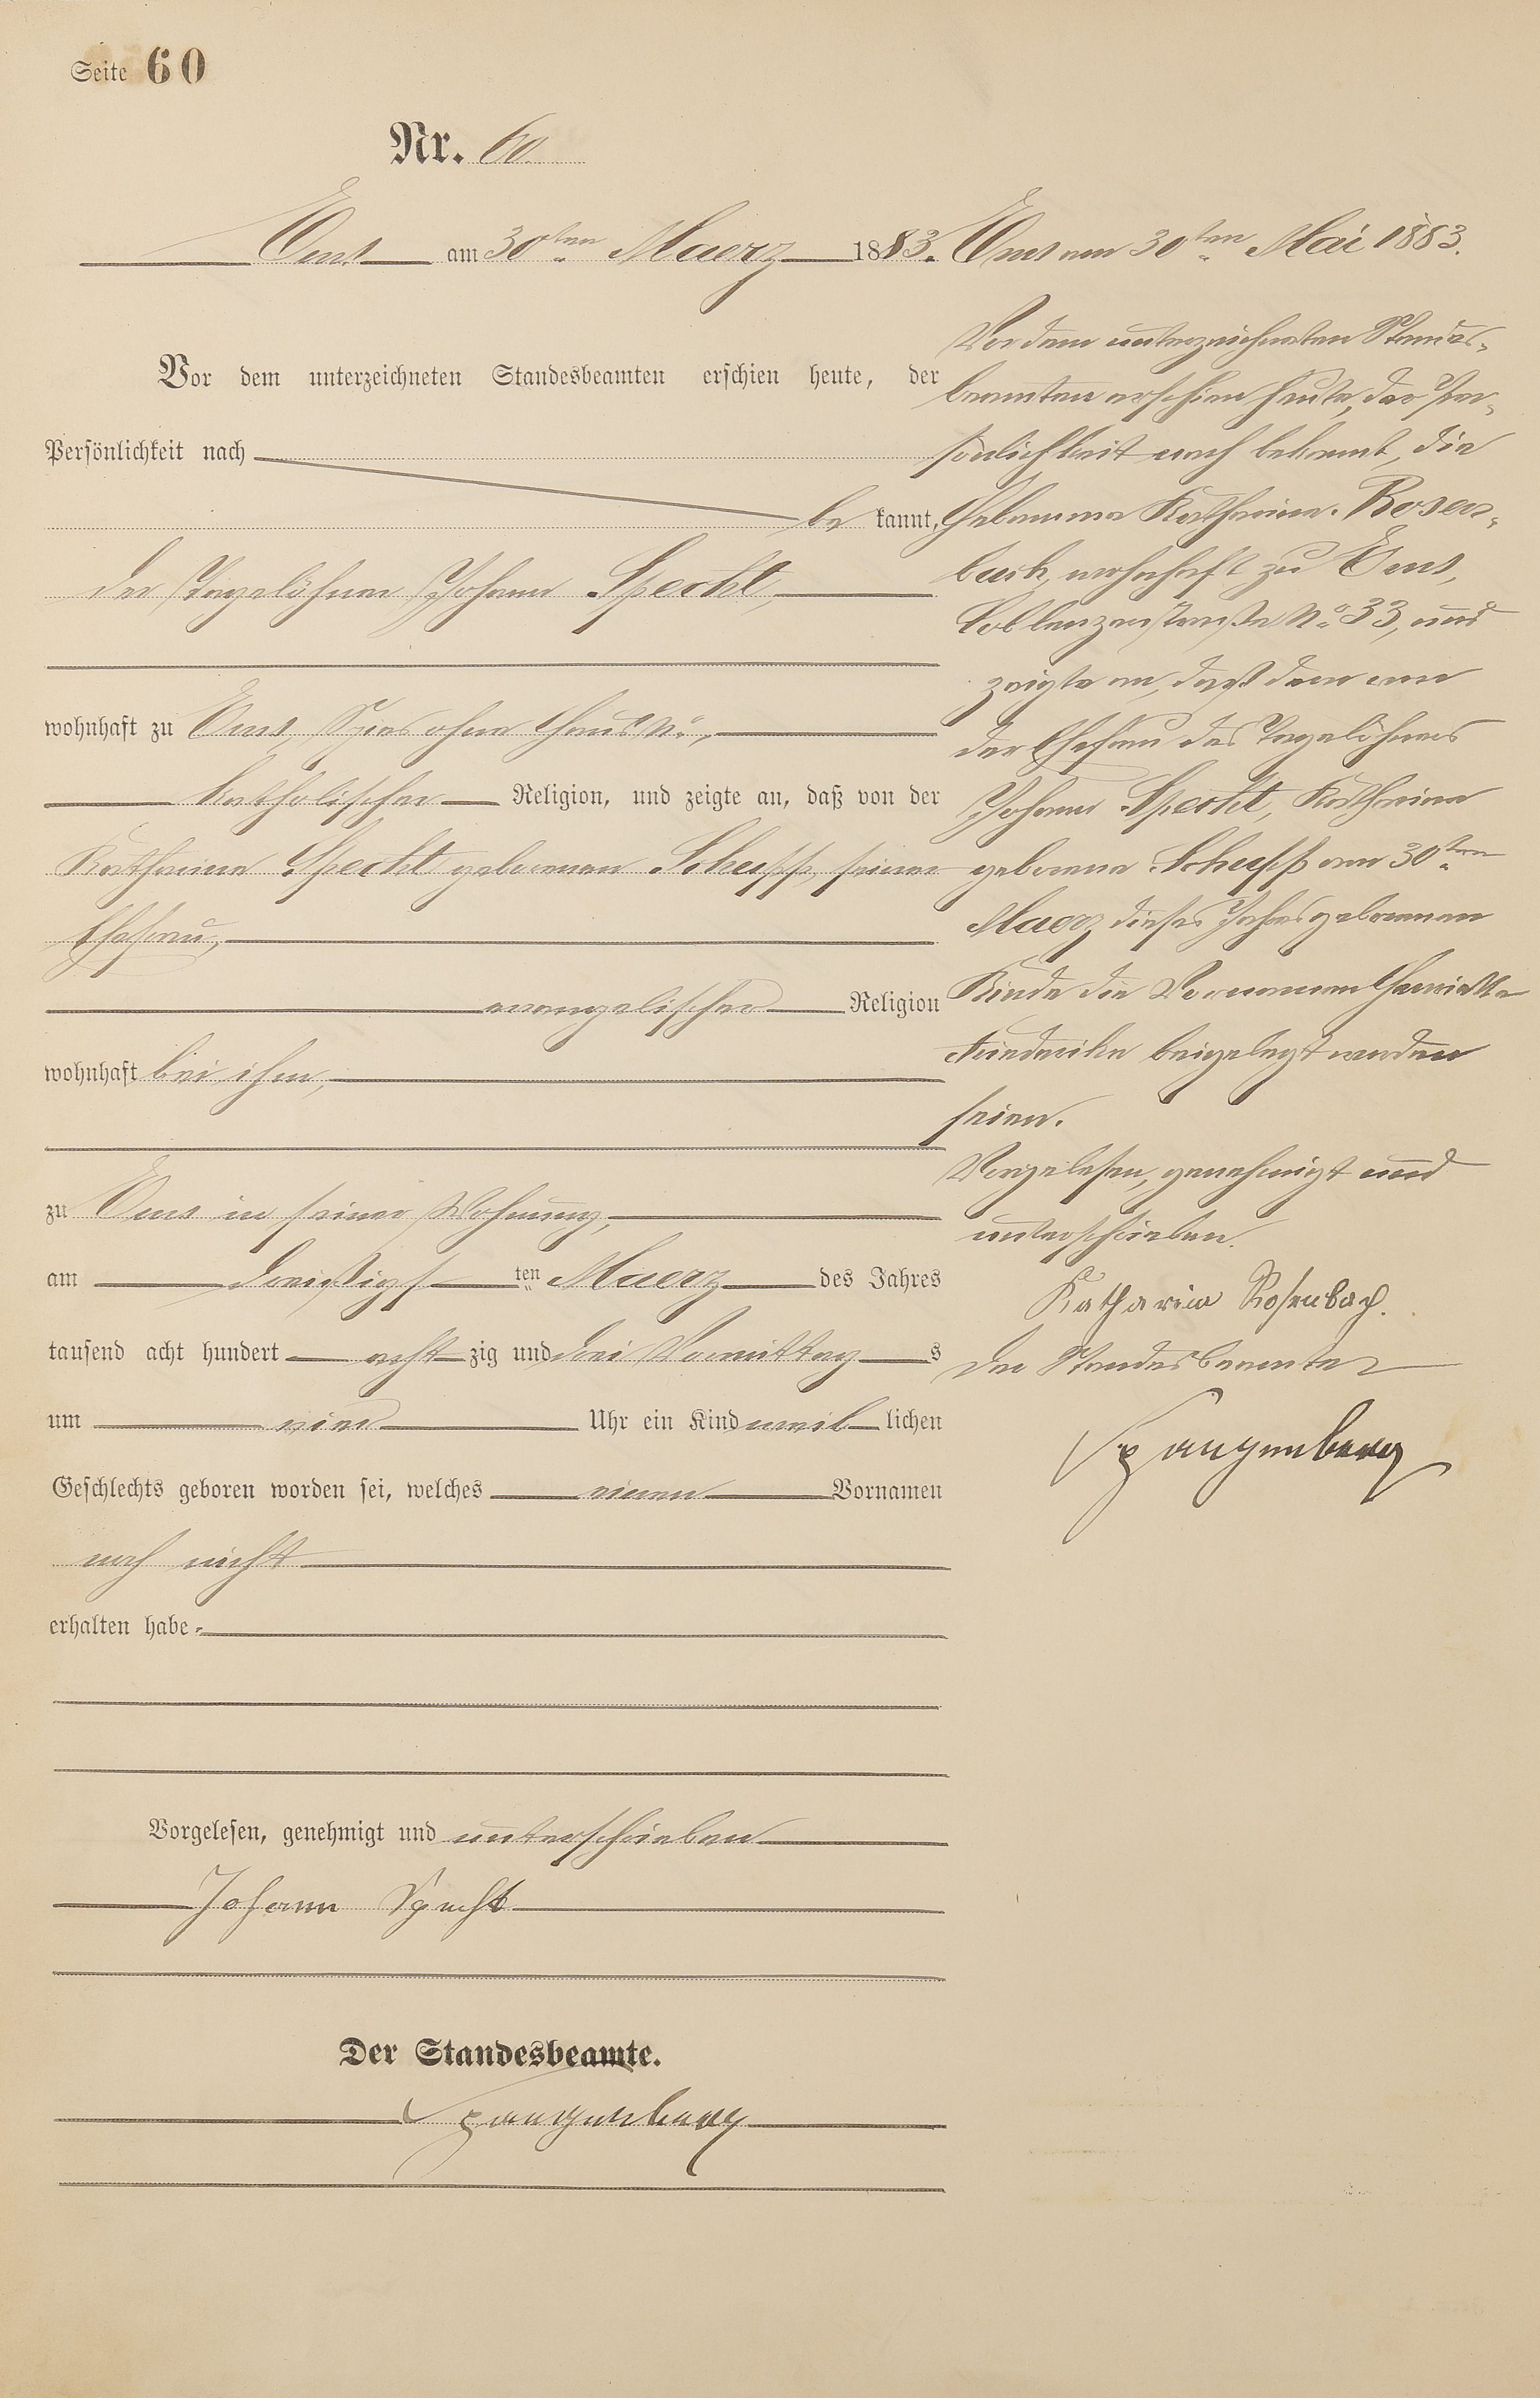 Seite 60
Nr. 60.
Ems am 30ten Maerz 1883.
Vor dem unterzeichneten Standesbeamten erschien heute, der
Persönlichkeit nach
be kannt,
der Tagelöhner Johann Specht,
wohnhaft zu Ems, Spies ohne Haus No,
katholischer Religion, und zeigte an, daß von der
Katharina Specht geborenen Schupp, seiner
Ehefrau,
evangelischer Religion
wohnhaft bei ihm,
zu Ems in seiner Wohnung,
am dreißigs ten Maerz des Jahres
tausend acht hundert acht zig und drei Vormittag s
um vier Uhr ein Kind weib lichen
Geschlechts geboren worden sei, welches einen Vornamen
noch nicht
erhalten habe.
Vorgelesen, genehmigt und unterschrieben
Johann Specht
Der Standesbeamte.
Spangenberg
Ems am 30ten Mai 1883.
Vor dem unterzeichneten Standes-
beamten erschien heute, der Per-
sönlichkeit nach bekannt, die
Hebamme Katharina Rosen-
bach, wohnhaft zu Ems,
Coblenzerstraße No 33, und
zeigte an, daß dem von
der Ehefrau des Tagelöhners
Johann Specht, Katharina
geborene Schupp am 30ten
Maerz dieses Jahres geborenen
Kinde die Vornamen Henriette
Friederike beigelegt worden
seien.
Vorgelesen, genehmigt und
unterschrieben.
Katharina Rosenbach.
Der Standesbeamte
Spangenberg